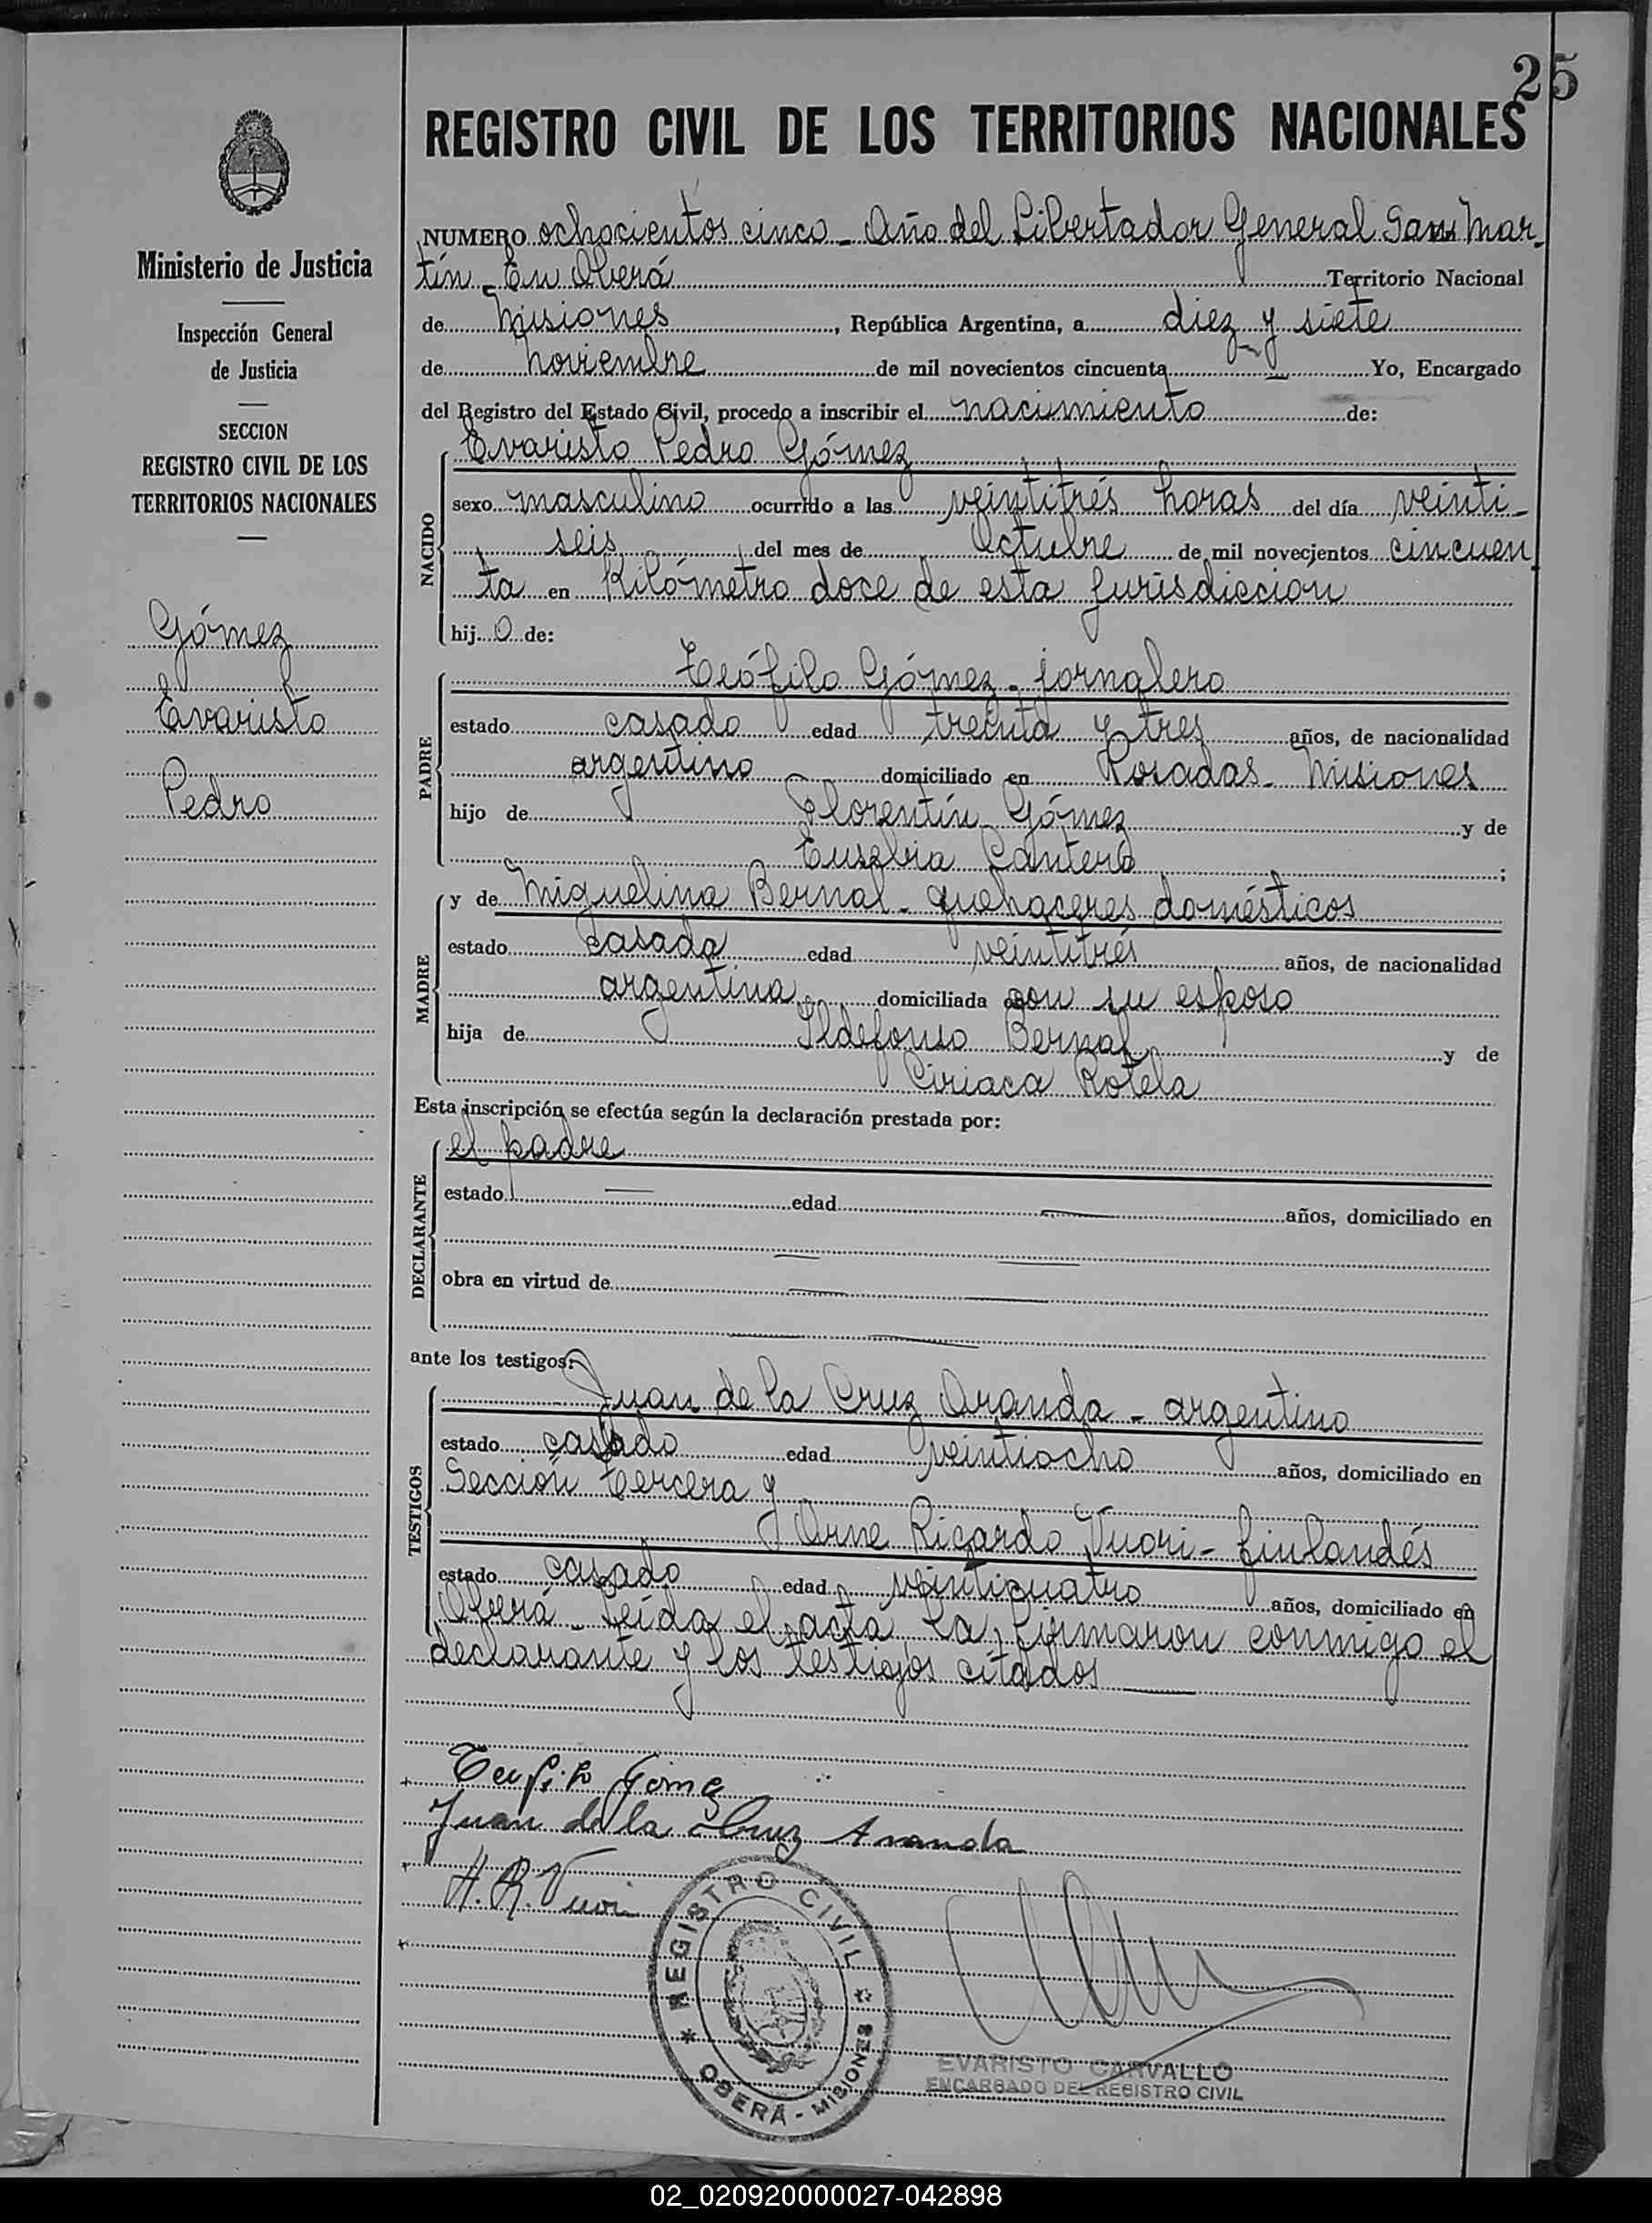 25
REGISTRO CIVIL DE LOS TERRITORIOS NACIONALES
Ministerio de Justicia
Inspección General
de Justicia
SECCION
REGISTRO CIVIL DE LOS
TERRITORIOS NACIONALES
Gómez
Evaristo
Pedro
NUMERO ochocientos cinco - Año del Libertador General San Mar-
tín - En Oberá Territorio Nacional
de Misiones, República Argentina, a diez y siete
de Noviembre de mil novecientos cincuenta Yo, Encargado
del Registro del Estado Civil, procedo a inscribir el nacimiento de:
NACIDO
Evaristo Pedro Gómez
sexo masculino ocurrido a las veintitrés horas del día veinti-
seis del mes de Octubre de mil novecientos cincuen
ta en Kilómetro doce de esta jurisdicción
hij o de:
PADRE
Teófilo Gómez - jornalero
estado casado edad treinta y tres años, de nacionalidad
argentino domiciliado en Posadas - Misiones
hijo de Florentín Gómez y de
Eusebia Cantero ;
MADRE
y de Miguelina Bernal - quehaceres domésticos
estado casada edad veintitrés años, de nacionalidad
argentina domiciliada con su esposo
hija de Ildefonso Bernal y de
Ciriaca Rotela
Esta inscripción se efectúa según la declaración prestada por:
DECLARANTE
el padre
estado — edad — años, domiciliado en
obra en virtud de
ante los testigos:
TESTIGOS
Juan de la Cruz Aranda - argentino
estado casado edad veintiocho años, domiciliado en
Sección Tercera y
Arne Ricardo Vuori - finlandés
estado casado edad veinticuatro años, domiciliado en
Oberá - Leída el acta, la firmaron conmigo el
declarante y los testigos citados
Teofilo Gomez
Juan de la Cruz Aranda
A. R. Vuori
REGISTRO CIVIL
OBERÁ - MISIONES
EVARISTO CARVALLO
ENCARGADO DEL REGISTRO CIVIL
02_020920000027-042898